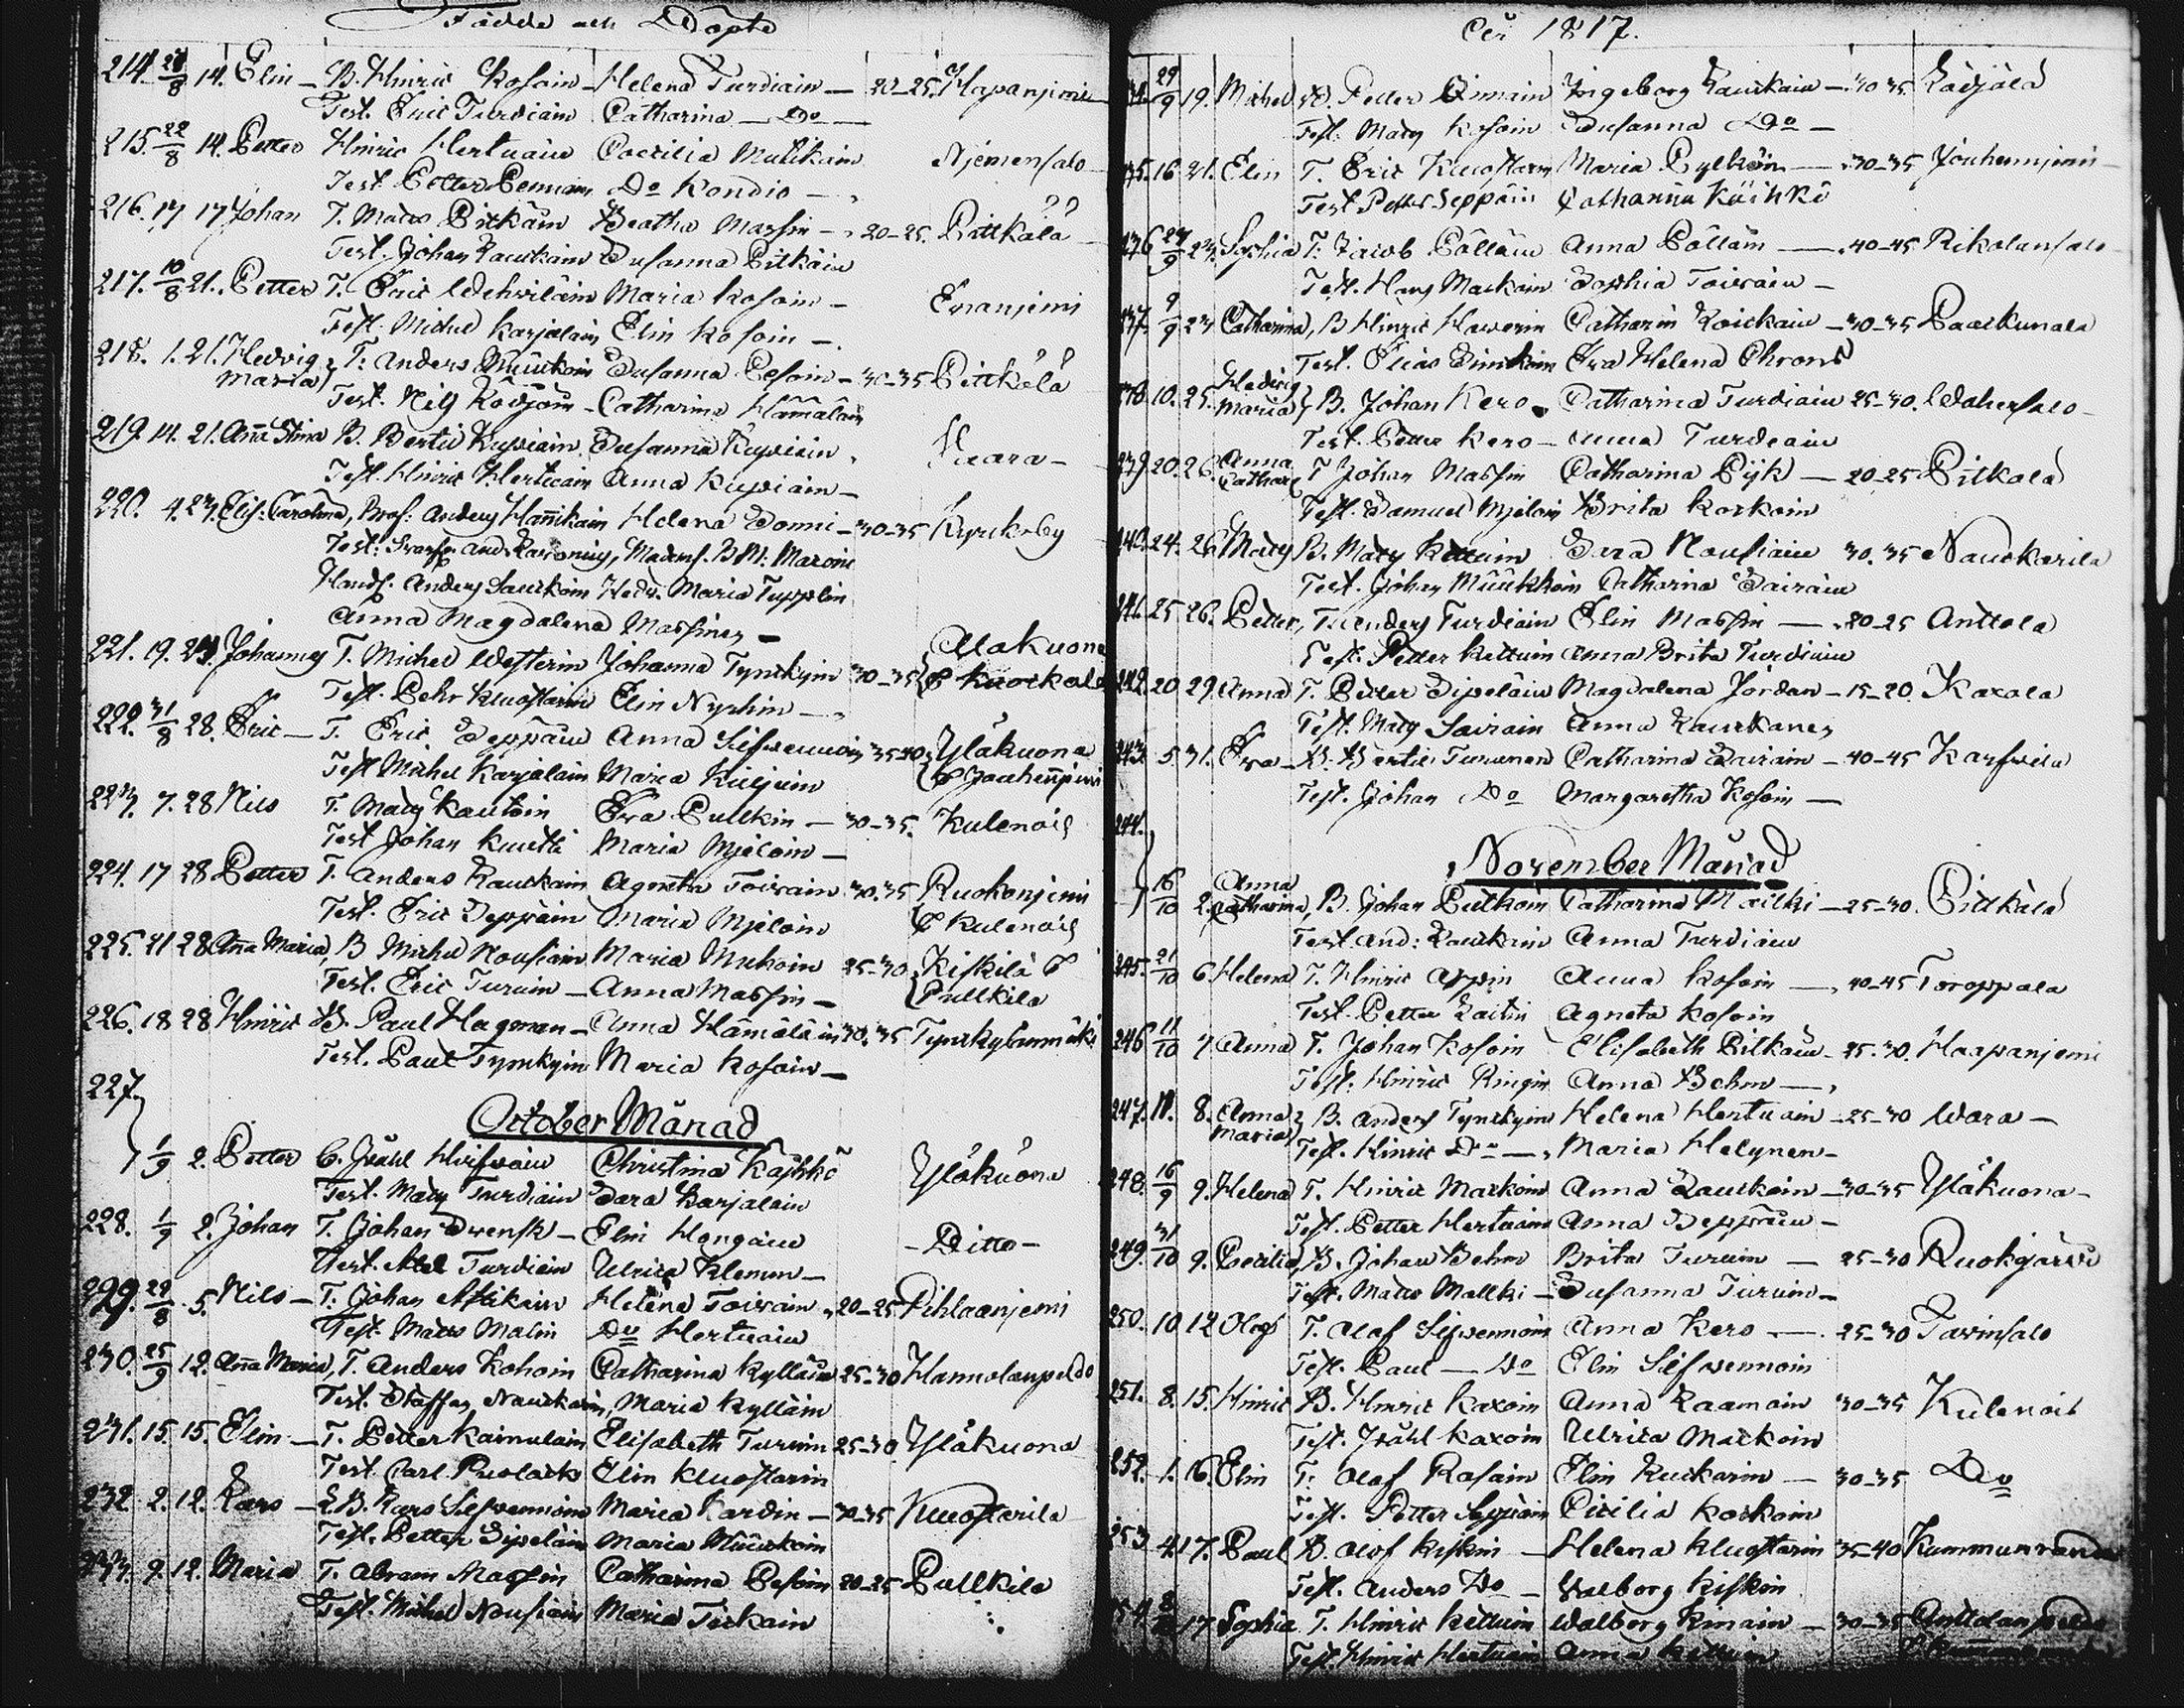 Födde och Döpte
214. 20/8 14. Elin — B. Hinric Kosoin — Helena Turdiain — 20-25. Hapanjemi
Test. Eric Turdiain Catharina — Do —
215. 22/8 14. Petter Hinric Hertuain Caecilia Mulikain Njemensalo
Test. Petter Do Kondio —
216. 17 17 Johan T. Matts Pitkäin Beatha Massin — 20-25. Pitkälä
Test. Johan Laukain Susanna Pitkäin
217. 10/8 21. Petter T. Eric Wehviläin Maria Kosoin — Eranjemi
Test. Michel Karjalain Elin Kosoin —
218. 1. 21. Hedvig Maria T. Anders Muukoin Susanna Pesoin — 30-35 Pitkälä
Test. Nils Catharina Hämäläin
219. 14. 21. Anna Stina B. Bertil Kupiain Susanna Kupiain
Test. Hinric Hertuain Anna Kupiain —
220. 4. 23. Elis: Carolina, Prof: Anders Hannikain Helena Domni — 30-35 Kyrckoby
And: Madms. B M:
Anders Laurkain Hedv. Maria Tupplin
Anna Magdalena Massines —
221. 19. Johannes T. Michel Westerin Johanna Tynckyin 30-35 Alakuona
Test. Pehr Kluostarin Elin Nyrhin —
222. 31/8 28. Eric — T. Eric Seppäin Anna Sifwennoin 35-40 Yläkuona
Test. Michel Karjalain Maria Kiljuin & Jouhennjemi
223. 7. 28 Nils T. Mats Kautoin Eva Pullkin — 30-35. Kulenois
Test. Johan Maria Mjeloin —
224. 17 28 Petter T. Anders Rauckain Agneta Toivain 30.35 Ruokonjemi
Test. Eric Seppäin Maria Mjeloin & Kulenois
225. 21 28 Anna Maria, B. Michel Nousiain Maria Muhoin 25-30 Kiskilä &
Test. Eric Turuin — Anna Massin — Pullkila
226. 18 28 Hinric B. Paul Hagman — Anna Hämäläin 30.35 Tynckylänmäki
Test. Paul Tynckyin Maria Kosoin —
227.
October Månad
1/9 2. Petter Christina Yläkuona
Test. Mats Turdiain Sara Karjalain
228. 1/9 2. Johan T. Johan Svensk — Elin Hongain — Ditto —
Test. Abel Turdiain Ulrica Klemm —
229. 29/8 5. Nils — T: Johan Helena Toivain 20-25 Pihlaanjemi
Test. Matts Malin Do Hertuain
230. 25/9 12. Anna Maria, T. Anders Kohoin Catharina Kylläin 25-30 Hannolanpeldo
Test. Staffan Nauckain, Maria Kylläin
231. 15. 15. Elin — T. Petter Kainulain Elisabeth Turuin 25-30 Yläkuona
Test. Carl Puolack Elin Kluostarin
232 2. 12. Lars — B. Lars Sifwennoin Maria Kardin — 30-35 Kluosterila
Test. Petter Sipeläin Maria Muukoin
233. 9. 12. Maria T. Abram Massin Catharina Pesoin 20-25 Pullkila
Test. Michel Nousiain Maria Tickain
År 1817.
29/9 19. Michel B. Petter Ingeborg Laurkain — 30 35
Test. Mats Kosoin Susanna Do —
16 21. Elin T. Eric Kluostarin Maria Pylkäin — 30-35 Jouhennjemi
Test. Petter Seppäin Catharina
236 27/9 Sophia T. Jacob Pölläin Anna Pölläin — 40-45 Rikolansalo
Test. Hans Mackoin Sophia Toivain —
237. 9/9 23 Catharina, B Hinric Haverin Catharin — 30-35 Paackunala
Test. Elias Simkoin Eva Helena
238. 10. 25. Hedvig Maria B. Johan Kero — Catharina Turdiain 25-30. Wahersalo
Test. Petter Kero — Anna Turdiain
239. 20. 26. Anna Cathar: T Johan Massin Catharina Pijk — 20-25 Pitkälä
Test. Samuel Mjeloin Brita Korkoin
240. 24. 26. Mats B. Mats Kettuin Sara Nousiain 30.35 Nauckarila
Test. Johan Muukkoin Catharina Sairain
241. 25 26. Petter, T. Anders Turdiain Elin Massin — 20-25 Anttola
Test. Petter Kettuin Anna Brita Turdiain
242. 20 29. Anna T. Petter Sipeläin Magdalena Jordan — 15-20. Kaxola
Test. Mats Sairain Anna Rauckanes
243. 5. 31. Eva — B. Bertil Turunen Catharina Sairain — 40-45 Karsvila
Test. Johan Do Margaretha Kosoin —
244.
November Månad
16/10 2. Anna Catharina, B. Johan Putkoin Catharina — 25-30. Pitkälä
Test. And: Laurkain Anna Turdiain
245. 21/10 6 Helena T. Hinric Anna Kosoin — 40-45 Toroppala
Test. Petter Laitin Agneta Kosoin
246 11/10 7 Anna T. Johan Kosoin Elisabeth Pitkäin 25-30. Haapanjemi
Test. Hinric Ringin Anna Behm —
247. 11. 8. Anna Maria B. Anders Tynckyin Helena Hertuain — 25-30 Wara —
Test. Hinric Do — Maria Helynen —
248. 16/9 9. Helena T. Hinric Mackoin Anna Laurkoin — 30-35 Yläkuona —
Test. Petter Hertuain Anna Seppäin —
249. 31/10 9. Caecilia, B. Johan Behm Brita Turuin — 25-30 Ruokojärvi
Test. Matts Mallki — Susanna Turuin —
250. 10 12 Olof T. Olof Sifwennoin Anna Kero — 25-30 Savinsalo
Test. Paul — Do Elin Sifwennoin
251. 8. 15. Hinric B. Hinric Kaxoin Anna Raamoin 30-35 Kulenois
Test. Kaxoin Ulrica Mackoin
252. 1. 16. Elin T. Olof Rasain Elin Kuckarin — 30-35 Do
Test. Petter Seppäin Cicilia Korkoin
253 4. 17. Paul B. Olof Kiskin — Helena Kluostarin 35-40 Kummunranda
Test. Anders Do — Walborg Kiskin
254. 17 Sophia T. Hinric Kettuin Walborg Kinain — 30-35 Anttolanpeldo
Test. Hinric Hertuain Anna Kettuin